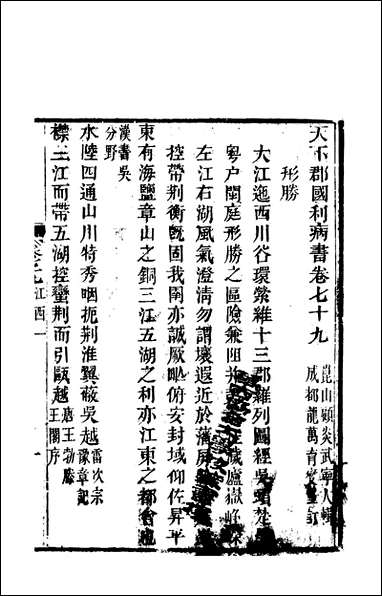 天下郡國利病書卷七十九
崑山顧炎武寧人輯
成都龍萬育訂
形勝
大江迤西川谷環縈維十三郡羅列圖經吳頭楚
粤户閩庭形勝之區險兼阻并藏廬嶽峰
左江右湖風氣澄清勿謂壤遐近於藩屏
控帶荆衡既固我圉亦誠厥俯安封域仰佐昇平
東有海鹽章山之銅三江五湖之利亦江東之都會也
漢書吳
分野
水陸四通山川特秀咽扼荆淮翼蔽吳越 雷次宗
豫章記
襟三江而帶五湖控蠻荆而引甌越 唐王勃滕
王閣序
江西一